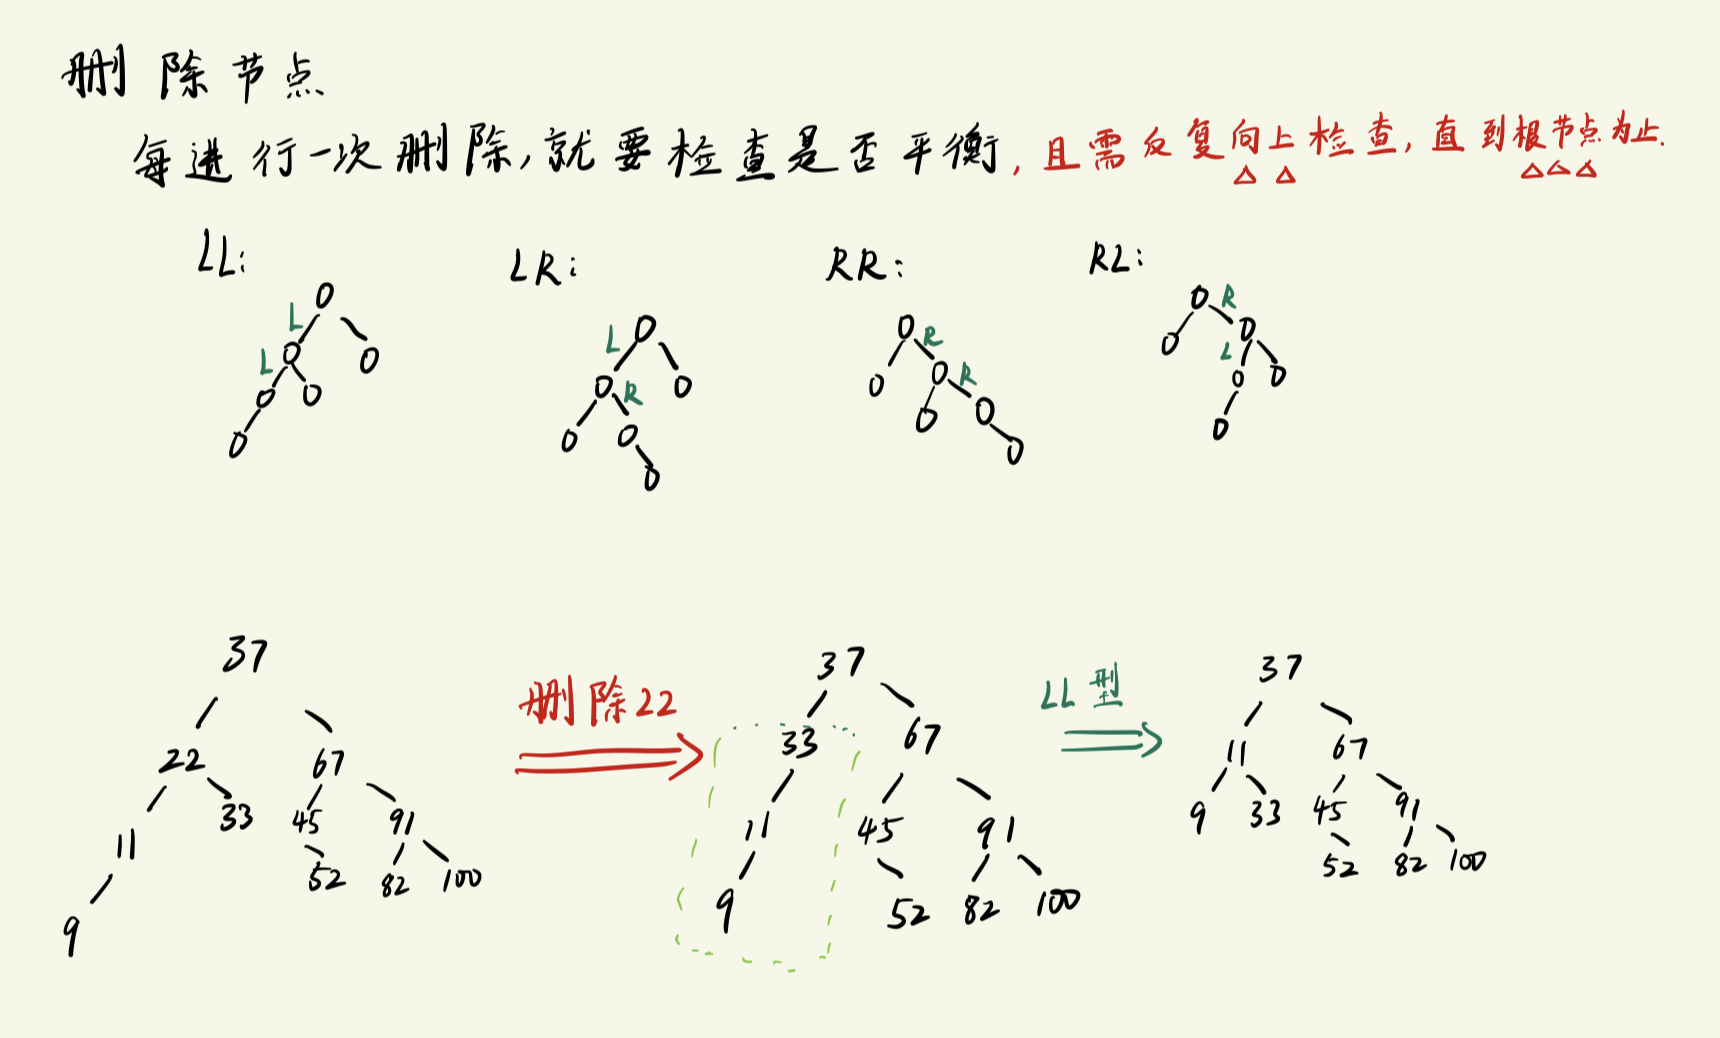 删除节点
每进行一次删除,就要检查是否平衡,且需反复向上检查,直到根节点为止.
LL:
LR:
RR:
RL:
L
L
L
R
R
R
R
L
37
22
67
11
33
45
91
9
52
82
100
删除22
37
33
67
11
45
91
9
52
82
100
LL型
37
11
67
9
33
45
91
52
82
100